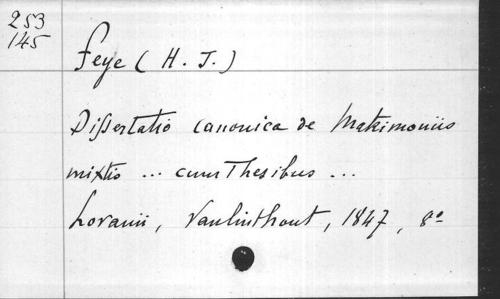 253
145
Feye (H. J.)
Dissertatio canonica de Matrimoniis
mixtis ... cum Thesibus ...
Lovanii, Vanlinthout, 1847, 8º